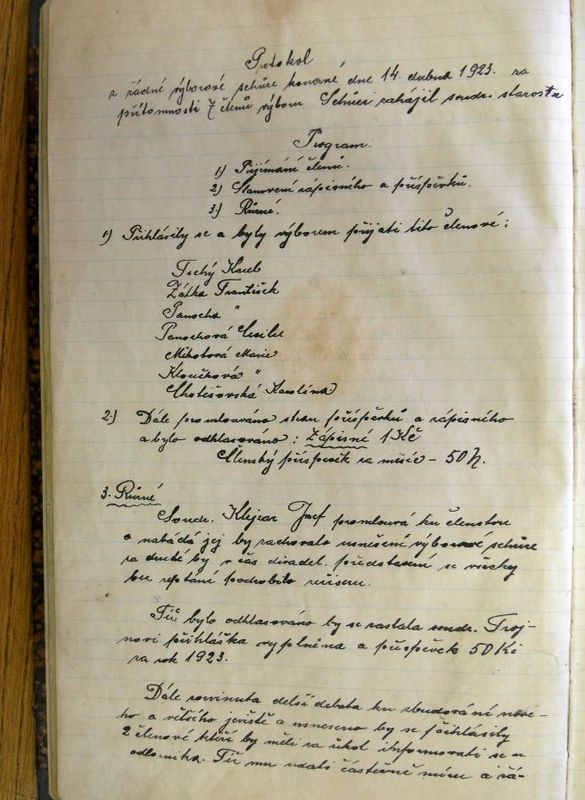 Protokol
z řádné výborové schůze konané dne 14. dubna 1923. za
přítomnosti 7 členů výboru Schůzi zahájil soudr. starosta
Program.
1) Přijímání členů.
2) Stanovení zápisného a příspěvků.
3) Různé.
1) Přihlásily se a byly výborem přijati tito členové:
Tichý Karel
Zátka František
Panocha "
Panochová Cecilie
Mikotová Marie
Kloučková "
Chotěšovská Karolína
2.) Dále promlouváno stran příspěvků a zápisného
a bylo odhlasováno: Zápisné 1 Kč
Členský příspěvek za měsíc – 50 h.
3. Různé
Soudr. Klejzar Josef promlouvá ku členstvu
a nabádá jej by zachovalo usnešení výborové schůze
za druhé by v čas divadel. představení se všechny
bez reptání podrobilo režiseru.
Též bylo odhlasováno by se zaslala soudr. Troj-
novi přihláška vyplněna a příspěvek 50 Kč
za rok 1923.
Dále rozvinuta delší debata ku zbudování nové-
ho a většího jeviště a usneseno by se přihlásily
2 členové kteří by měli za úkol informovati se u
odborníka. Též mu udati částečně míru a žá-